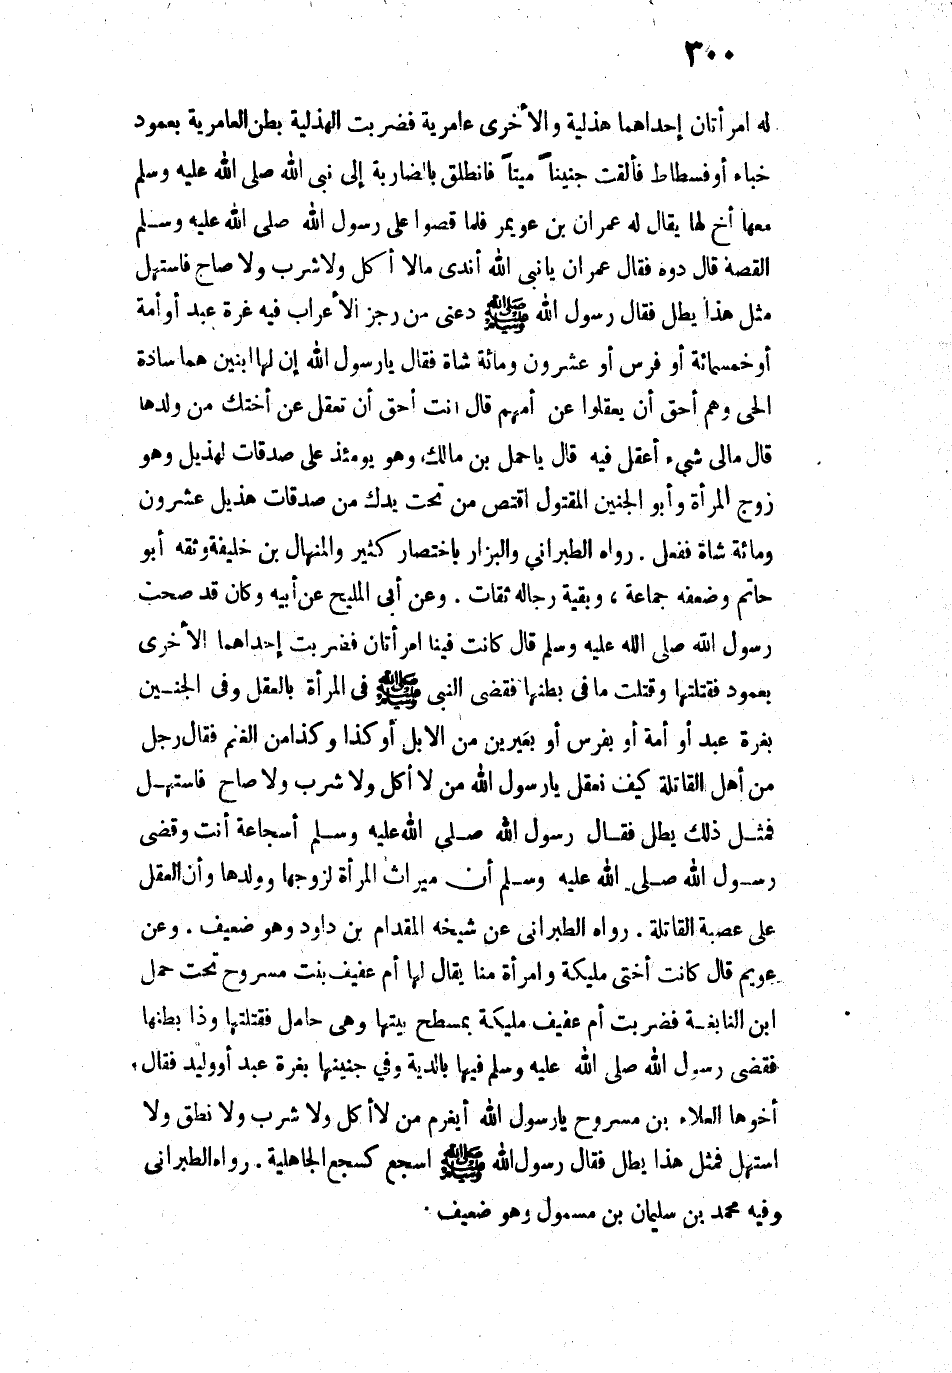 ٣٠٠
له امرأتان إحداهما هذلية والأخرى عامرية فضربت الهذلية بطن العامرية بعمود
خباء أو فسطاط فألقت جنيناً ميتاً فانطلق بالضاربة إلى نبى الله صلى الله عليه وسلم
معها أخ لها يقال له عمران بن عويمر فلما قصوا على رسول الله صلى الله عليه وسلم
القصة قال دوه فقال عمران يانبى الله أندى مالا أكل ولا شرب ولا صاح فاستهل
مثل هذا يطل فقال رسول الله ﷺ دعنى من رجز الأعراب فيه غرة عبد أو أمة
أو خمسمائة أو فرس أو عشرون ومائة شاة فقال يارسول الله إن لها ابنين هما سادة
الحى وهم أحق أن يعقلوا عن أمهم قال أنت أحق أن تعقل عن أختك من ولدها
قال مالى شيء أعقل فيه قال ياحمل بن مالك، وهو يومئذ على صدقات لهذيل وهو
زوج المرأة وأبو الجنين المقتول اقتص من تحت يدك من صدقات هذيل عشرون
ومائة شاة ففعل . رواه الطبراني والبزار باختصار كثير والمنهال بن خليفة وثقه أبو
حاتم وضعفه جماعة ، وبقية رجاله ثقات . وعن أبى المليح عن أبيه وكان قد صحب
رسول الله صلى الله عليه وسلم قال كانت فينا امرأتان فضربت إحداهما الأخرى
بعمود فقتلتها وقتلت ما فى بطنها فقضى النبى ﷺ فى المرأة بالعقل وفى الجنــين
بغرة عبد أو أمة أو بفرس أو بعيرين من الابل أو كذا وكذا من الغنم فقال رجل
من أهل القاتلة كيف نعقل يارسول الله من لا أكل ولا شرب ولا صاح فاستهــل
فمثــل ذلك يطل فقــال رسول الله صــلى الله عليه وســلم أسجاعة أنت وقضى
رســول الله صــلى الله عليه وســلم أن ميراث المرأة لزوجها وولدها وأن العقل
على عصبة القاتلة . رواه الطبرانى عن شيخه المقدام بن داود وهو ضعيف . وعن
عويم قال كانت أختى مليكة وامرأة منا يقال لها أم عفيف بنت مسروح تحت حمل
ابن النابغــة فضربت أم عفيف مليكة بمسطح بيتها وهى حامل فقتلتها وذا بطنها
فقضى رسول الله صلى الله عليه وسلم فيها بالدية وفي جنينها بغرة عبد أو وليد فقال
أخوها العلاء بن مسروح يارسول الله أيغرم من لا أكل ولا شرب ولا نطق ولا
استهل فمثل هذا يطل فقال رسول الله ﷺ اسجع كسجع الجاهلية . رواه الطبرانى
وفيه محمد بن سليمان بن مسمول وهو ضعيف .